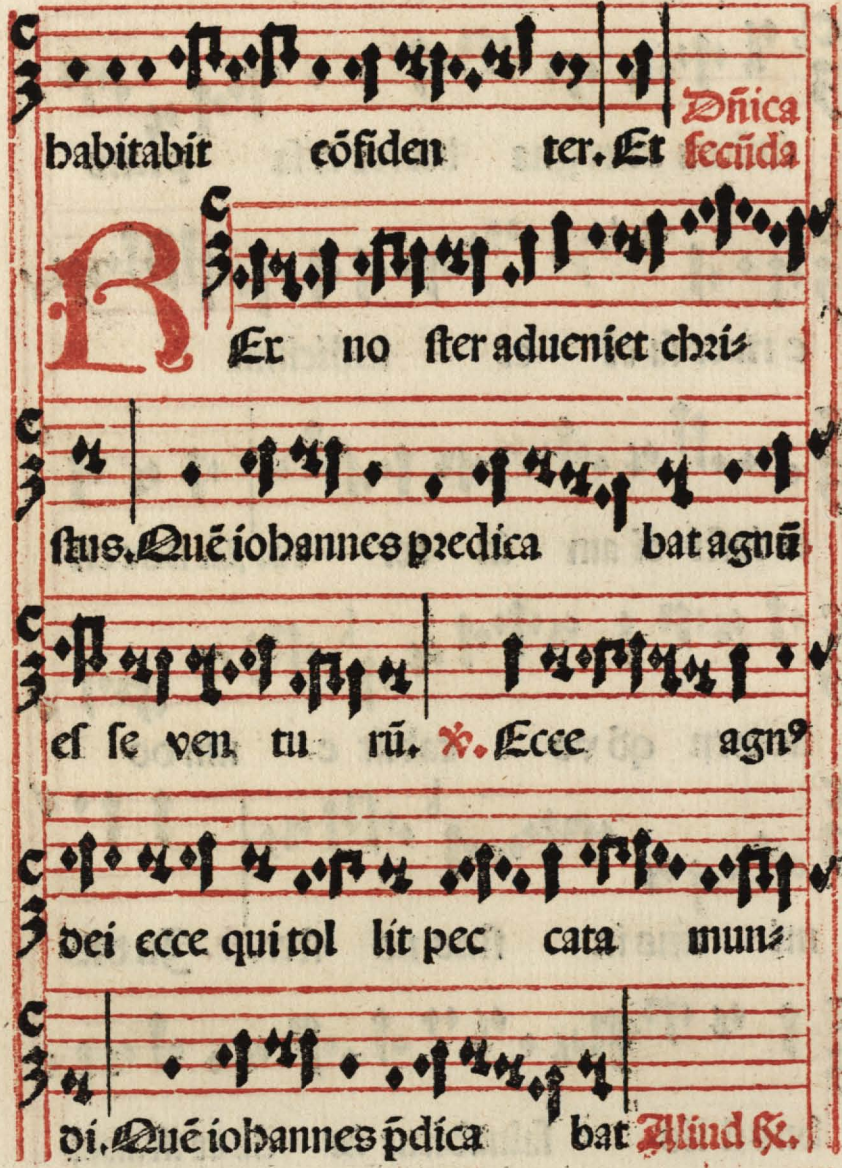 habitabit cōfiden ter. Et Dñica
secūda
REx no ster adueniet chri-
stus. Quē iohannes predica bat agnū
es se ven tu rū. ℣. Ecce agnꝰ
dei ecce qui tol lit pec cata mun-
di. Quē iohannes p̄dica bat Aliud ℞.